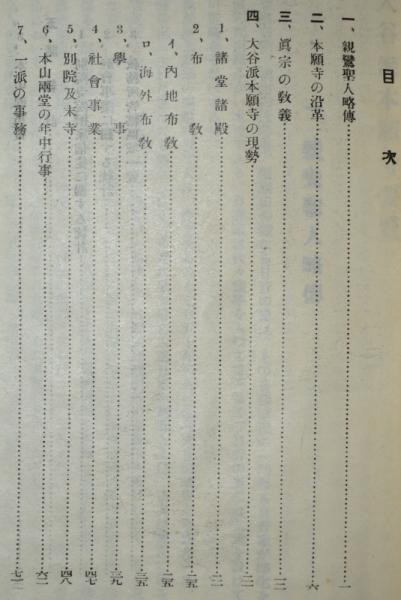 目次
一、親鸞聖人略傳…………一
二、本願寺の沿革…………六
三、眞宗の敎義…………一三
四、大谷派本願寺の現勢
1、諸堂諸殿…………二一
2、布敎…………二五
イ、內地布敎…………二五
ロ、海外布敎…………三五
3、學事…………三九
4、社會事業…………四七
5、別院及末寺…………四八
6、本山兩堂の年中行事…………六二
7、一派の事務…………七一